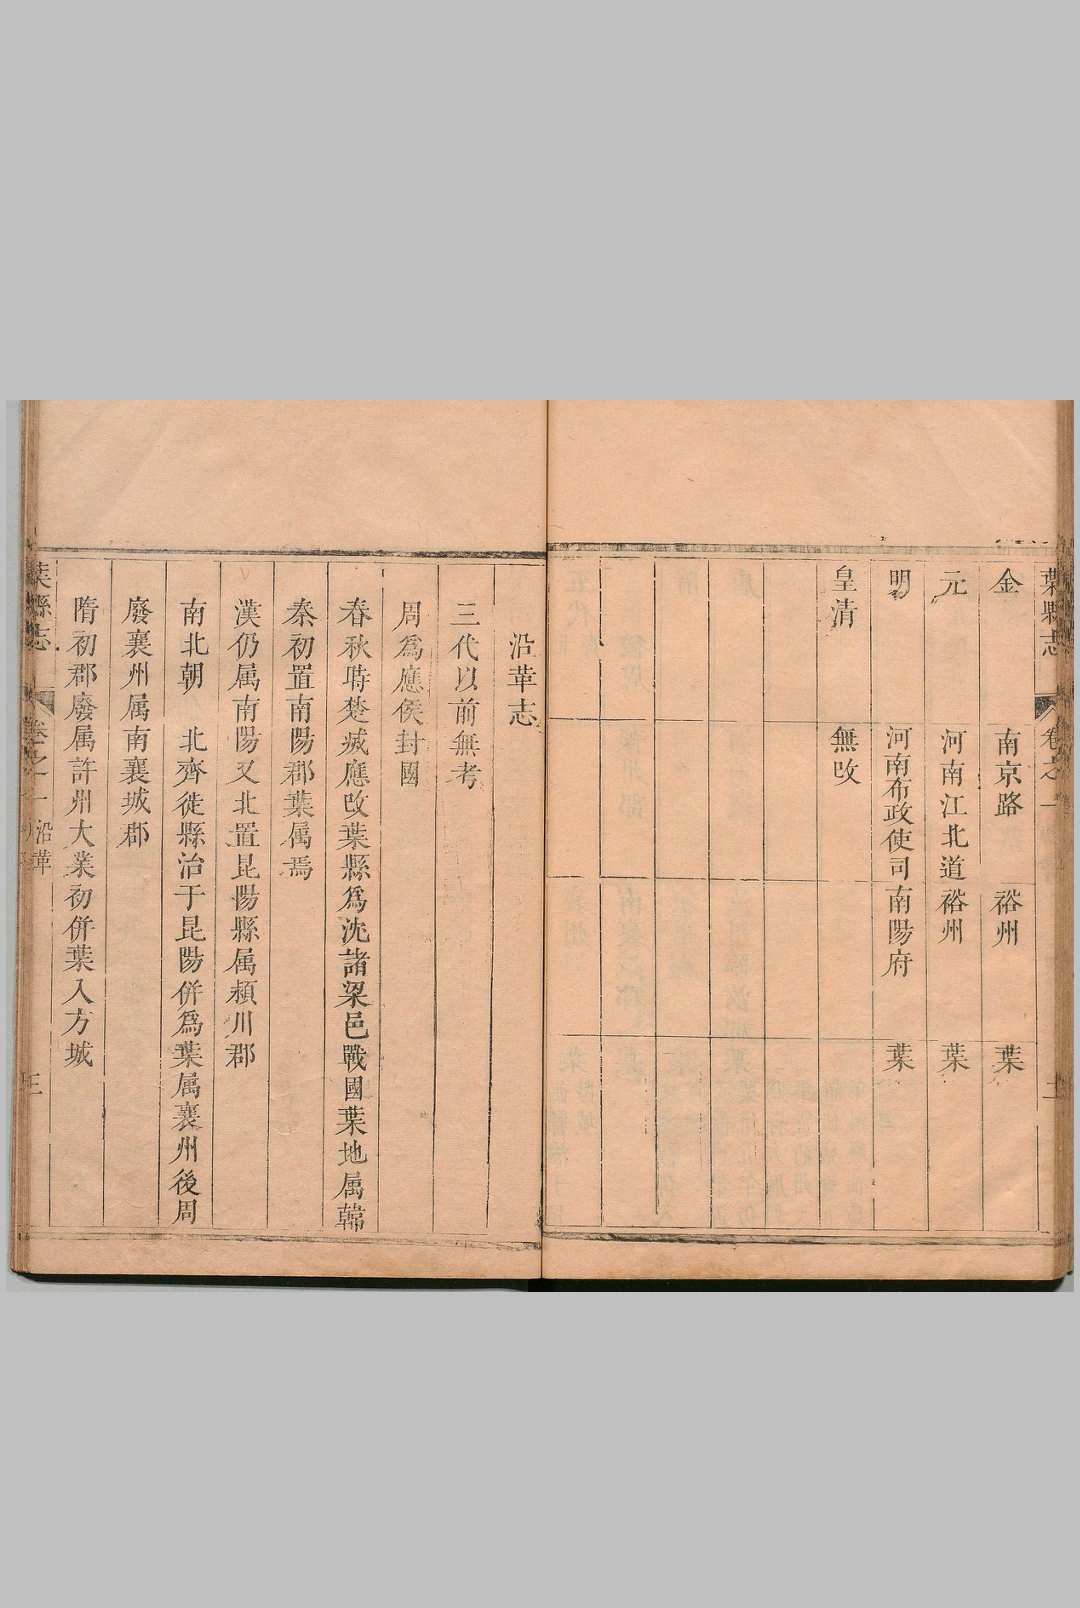 葉縣志 卷之一
金 南京路 裕州 葉
元 河南江北道 裕州 葉
明 河南布政使司 南陽府 葉
皇清 無改
沿革志
三代以前無考
周為應侯封國
春秋時楚滅應改葉縣為沈諸梁邑戰國葉地属韓
秦初置南陽郡葉属焉
漢仍属南陽又北置昆陽縣属潁川郡
南北朝 北齊徙縣治于昆陽併為葉属襄州後周
廢襄州属南襄城郡
隋初郡廢属許州大業初併葉入方城
葉縣志 卷之一 沿革